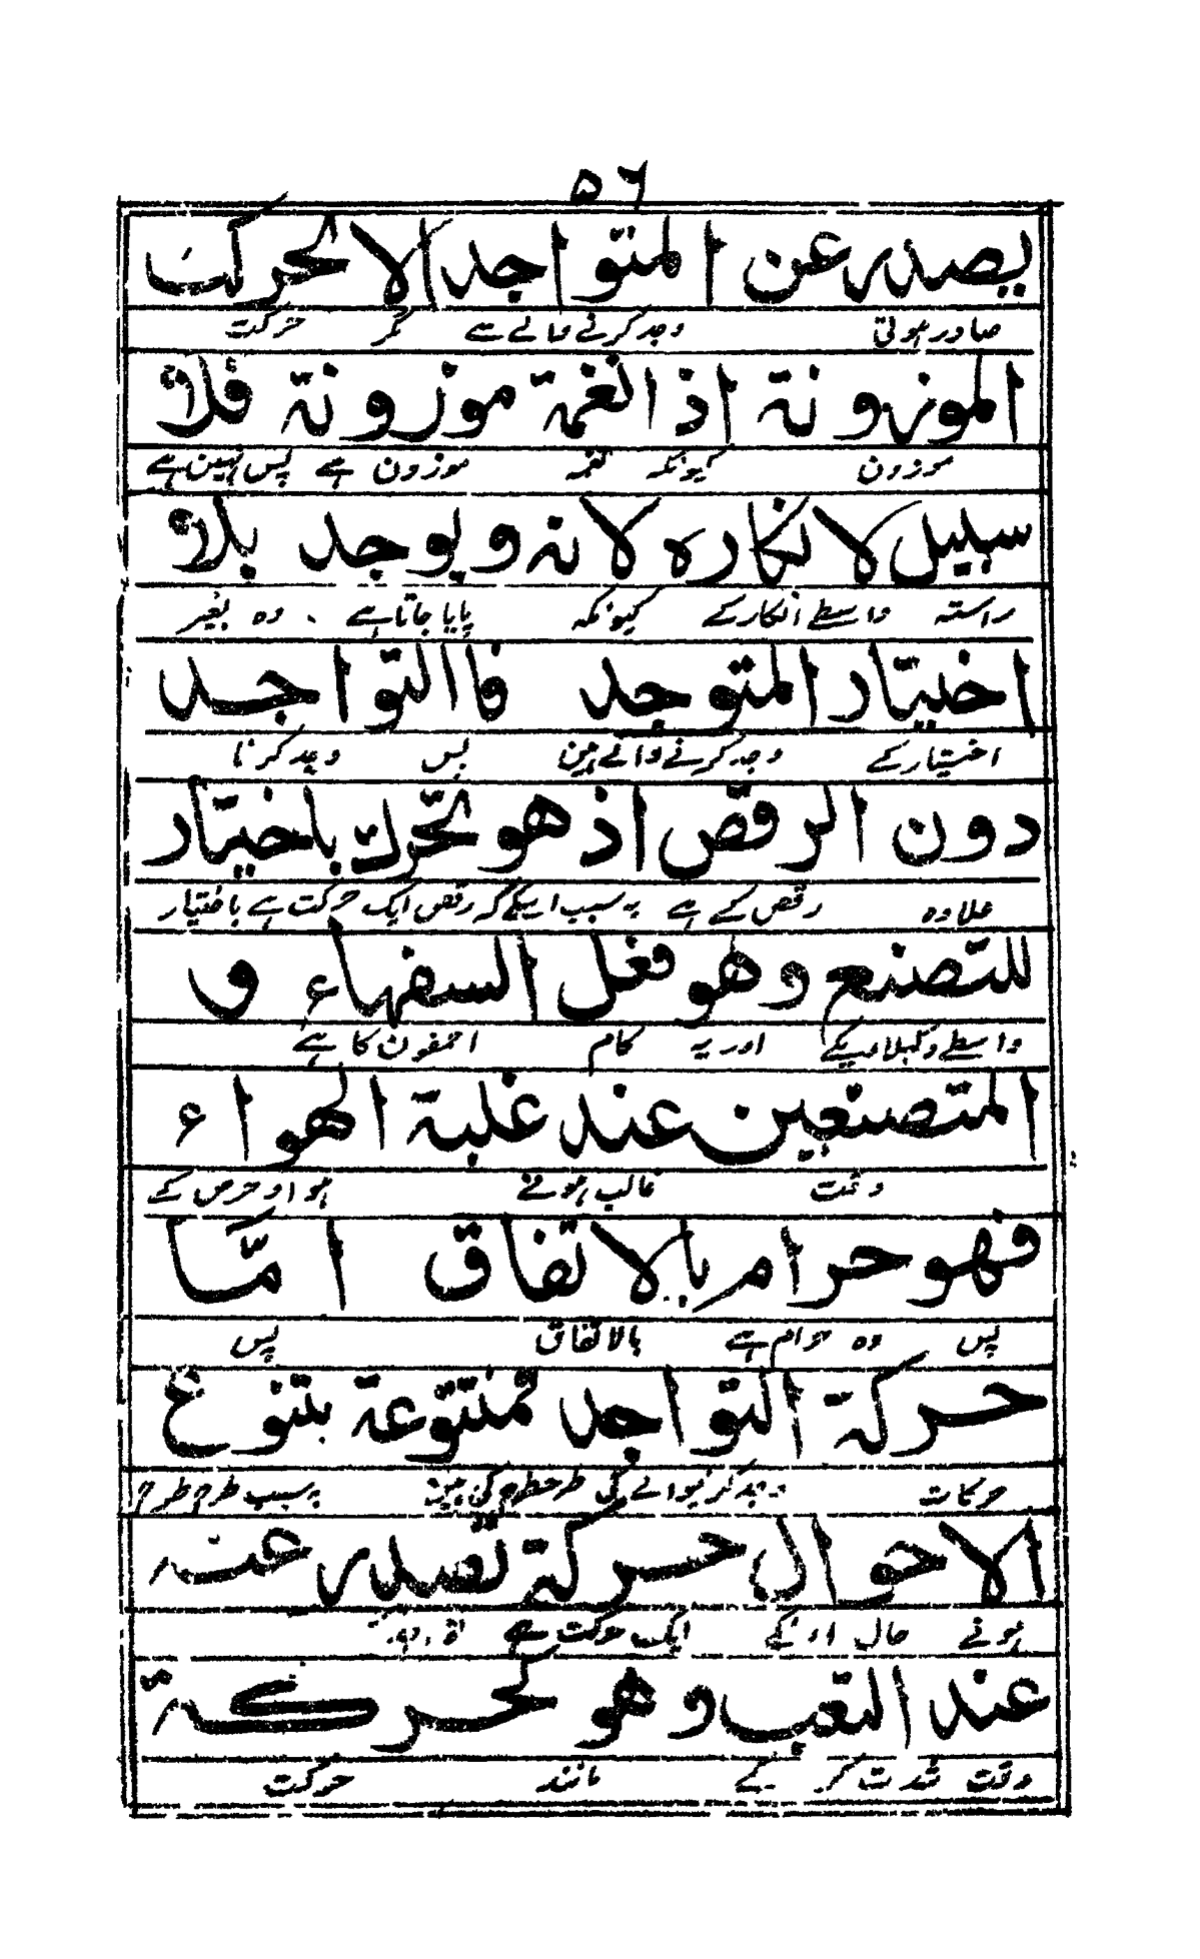 ۵۶
يصدر عن المتواجد الا الحركت
صادر ہوتی وجد کرنے والے سے مگر حرکت
الموزونة اذ النغمة موزونة فلا
موزون کیونکہ نغمہ موزون ہے پس نہین ہے
سبيل لانكاره لانه و يوجد بلا
راستہ واسطے انکار کے کیونکہ پایا جاتا ہے وہ بغیر
اختيار المتوجد فاالتواجد
اختیار کے وجد کرنے والے مین پس وجد کرنا
دون الرقص اذ هو تحرك باختيار
علاوہ رقص کے ہے بہ سبب اسکے کہ رقص ایک حرکت ہے باختیار
للتصنع وهو فعل السفهاء و
واسطے دکھلاویکے اور یہ کام احمقون کا ہے
المتصنعين عند غلبة الهواء
وقت غالب ہونے ہوا و حرص کے
فهو حرام بالاتفاق امّا
پس وہ حرام ہے بالاتفاق پس
حركة التواجد فمتنوعة بتنوع
حرکات وجد کرنیوالے کی طرحطرح کی ہین بہ سبب طرح طرح
الاحوال حركة تصدر عنه
ہونے حال اونکے ایک حرکت ہے
عند التعب وهو كحركة
وقت شدت کے مانند حرکت